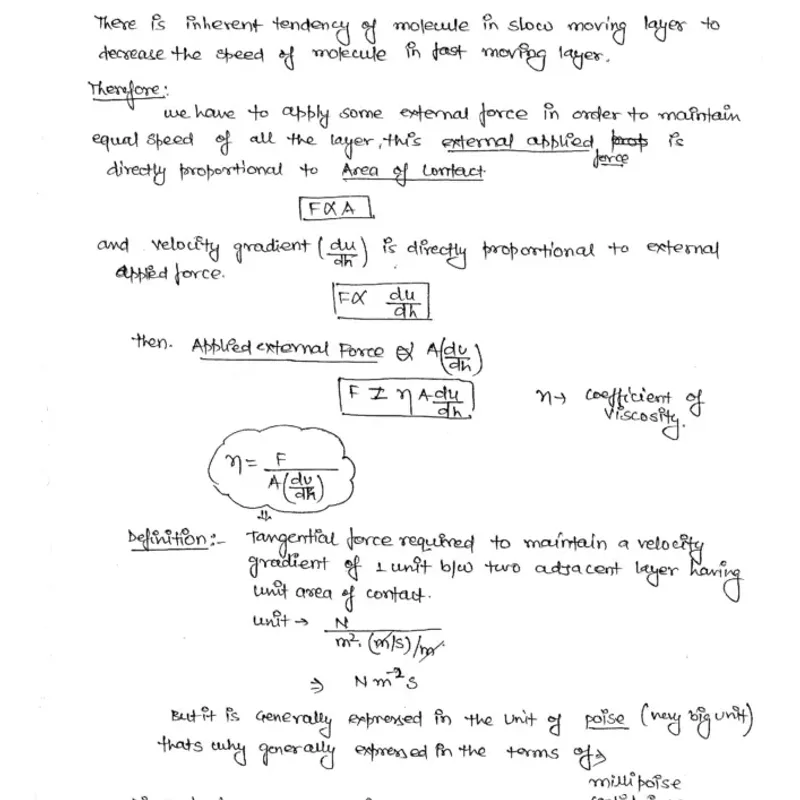 There is inherent tendency of molecule in slow moving layer to
decrease the speed of molecule in fast moving layer.
Therefore:
we have to apply some external force in order to maintain
equal speed of all the layer, this external applied force is
directly proportional to Area of contact
F ∝ A
and velocity gradient (du/dh) is directly proportional to external
applied force.
F ∝ du/dh
then. Applied external Force ∝ A(du/dh)
F = η A du/dh    η → coefficient of
viscosity.
η = F / A(du/dh)
⇓
Definition:- Tangential force required to maintain a velocity
gradient of 1 unit b/w two adjacent layer having
unit area of contact.
unit → N / m². (m/s)/m
⇒ N m⁻² s
But it is Generally expressed in the unit of poise (very big unit)
thats why generally expressed in the terms of →
millipoise